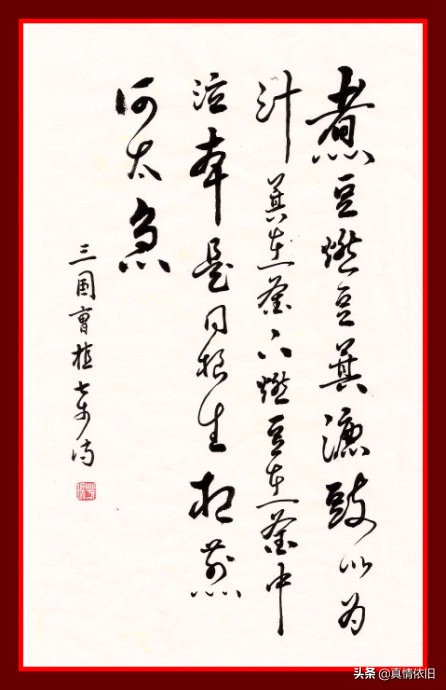 煮豆燃豆萁漉豉以为
汁萁在釜下燃豆在釜中
泣本是同根生相煎
何太急
三国曹植七步诗
头条 @真情依旧